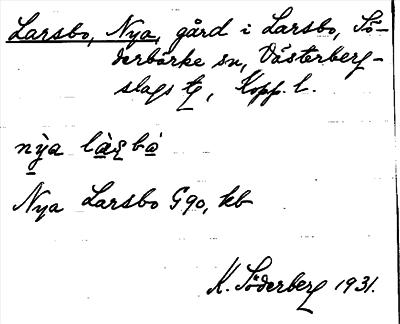 Larsbo, Nya, gård i Larsbo, Sö-
derbärke sn, Västerberg-
slags tg, Kopp. l.
nỳa là̱ʂbo̱
Nya Larsbo G90, kb
K. Söderberg 1931.